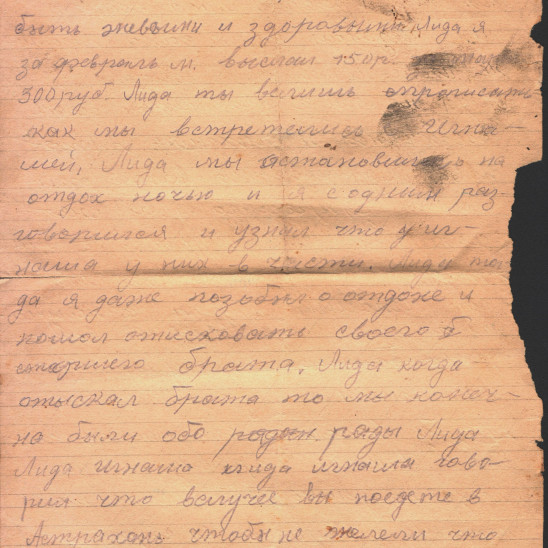 быть живыми и здоровыми Лида я
за февраль м. выслал 150 р.
300 руб Лида ты велишь описать
как мы встретелись с Игна-
шей, Лида мы астановились на
отдох ночью и я содним раз-
говорился и узнал что у
у них в части. Лида
да я даже позобыл о отдохе и
пошол отисковать своего
старшего брата, Лида когда
отыскал брата то мы конеч-
на были обо рады Лида
Лида Игнаша гово-
рил что вслучее вы поедете в
Астрахонь чтобы не жилели что